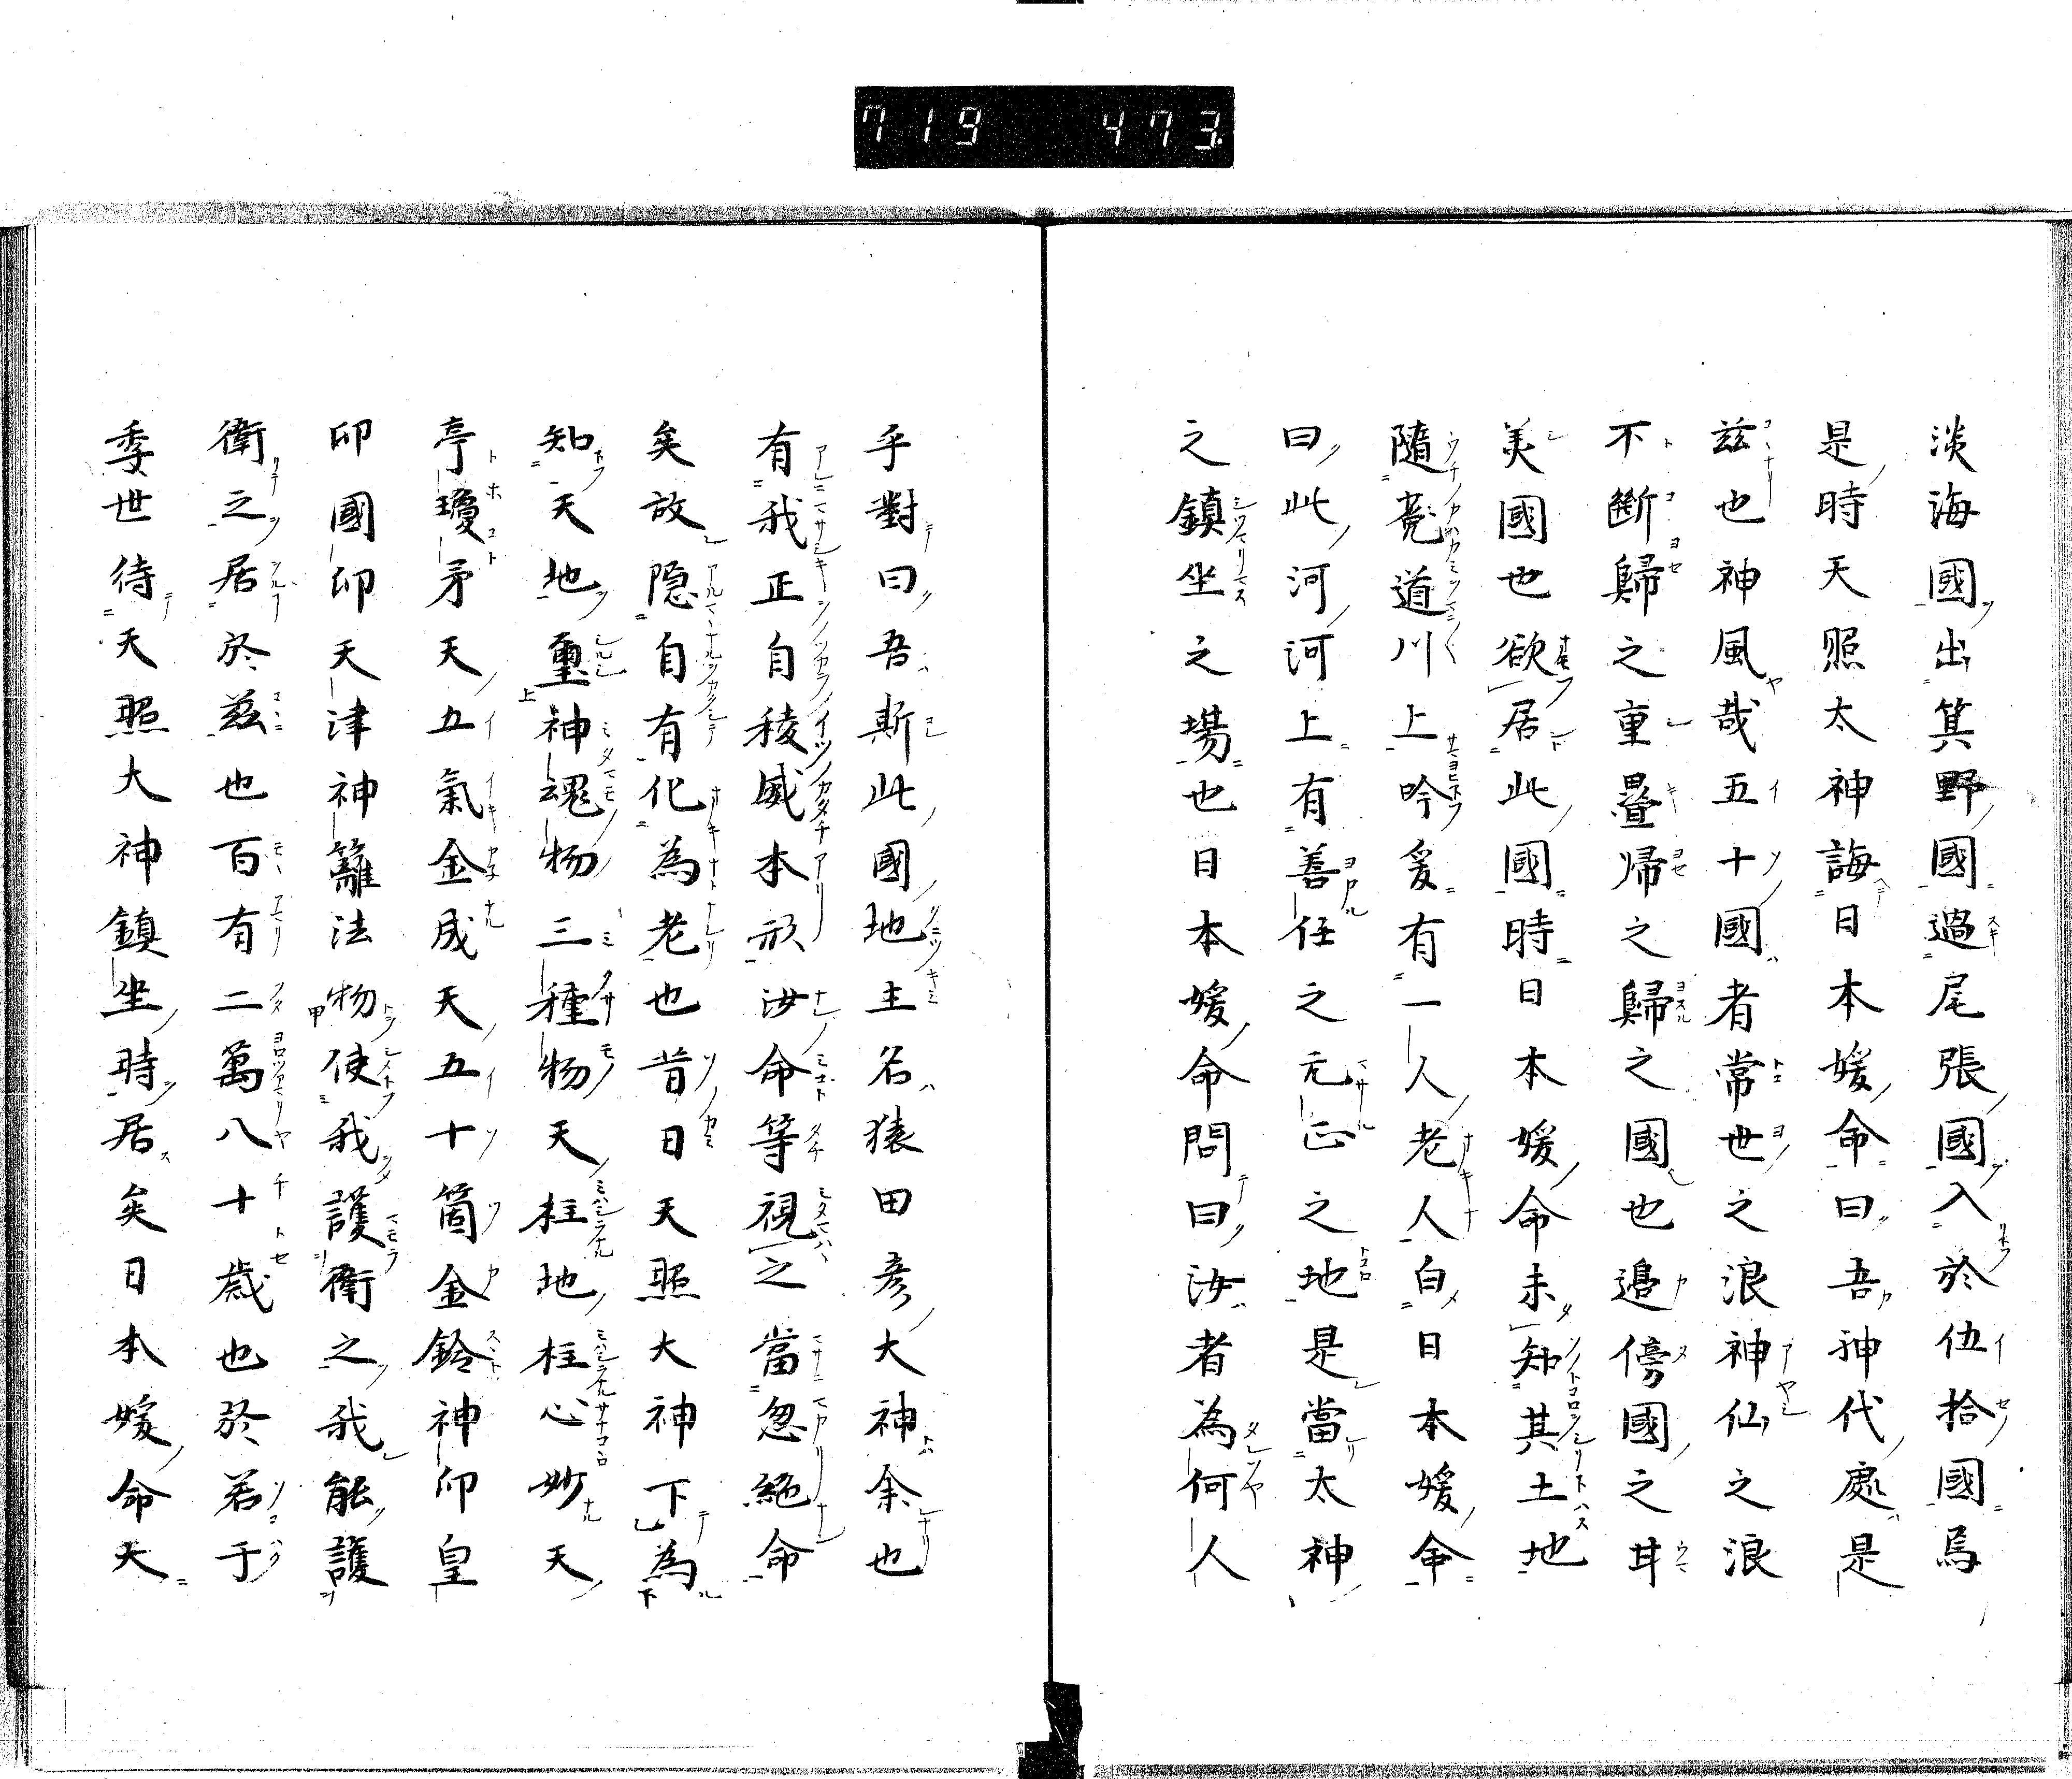 719 473
淡海國出箕野國過尾張國入於伍拾國焉
是時天照太神誨日本媛命曰吾神代處是
茲也神風哉五十國者常世之浪神仙之浪
不斷歸之重疊帰之歸之國也邉傍國之甘
美國也欲居此國時日本媛命未知其土地
隨覓道川上吟爰有一人老人白日本媛命
曰此河河上有善任之元正之地是當太神
之鎮坐之場也日本媛命問曰汝者為何人
乎對曰吾斯此國地主名猿田彦大神余也
有我正自稜威本祈汝命等視之當忽絕命
矣故隐自有化為老也昔日天照大神下為
知天地璽神魂物三種物天柱地柱心妙天
亭瓊矛天五氣金成天五十箇金鈴神印皇
印國印天津神籬法物使我護衛之我能護
衛之居於茲也百有二萬八十歲也於若于
季世待天照大神鎮坐時居矣日本媛命大